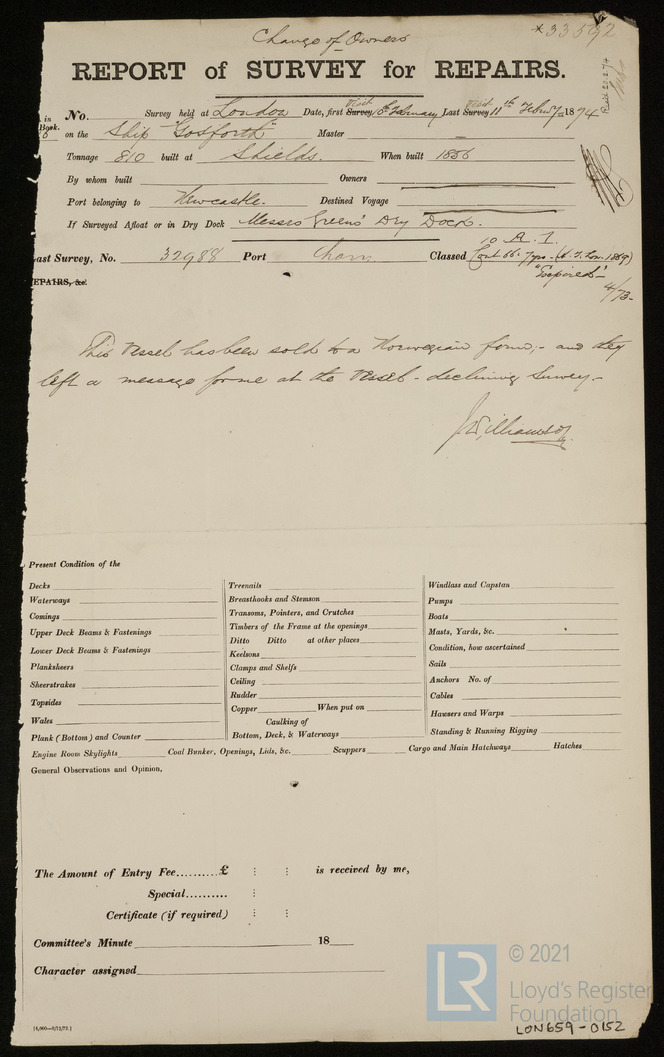 Change of Owners
*33592
REPORT of SURVEY for REPAIRS.
in Book. No. Survey held at London Date, first Survey Visit 6th February Last Survey Visit 11th Feb 1874
on the Ship "Gosforth" Master —
Tonnage 810 built at Shields. When built 1856
By whom built Owners
Port belonging to Newcastle. Destined Voyage
If Surveyed Afloat or in Dry Dock Messrs Green's Dry Dock.
10 A. 1.
ast Survey, No. 32988 Port Classed Cont 66. 7yrs. 1869)
"Expired"
4/73-
EPAIRS, &c.
This Vessel has been sold to a Norwegian firm; - and they
left a message for me at the Vessel - declining Survey. -
J Williamson
Present Condition of the
Decks
Waterways
Comings
Upper Deck Beams & Fastenings
Lower Deck Beams & Fastenings
Planksheers
Sheerstrakes
Topsides
Wales
Plank (Bottom) and Counter
Treenails
Breasthooks and Stemson
Transoms, Pointers, and Crutches
Timbers of the Frame at the openings
Ditto Ditto at other places
Keelsons
Clamps and Shelfs
Ceiling
Rudder
Copper When put on
Caulking of
Bottom, Deck, & Waterways
Windlass and Capstan
Pumps
Boats
Masts, Yards, &c.
Condition, how ascertained
Sails
Anchors No. of
Cables
Hawsers and Warps
Standing & Running Rigging
Engine Room Skylights Coal Bunker, Openings, Lids, &c. Scuppers Cargo and Main Hatchways Hatches
General Observations and Opinion,
The Amount of Entry Fee..........£ : : is received by me,
Special.......... :
Certificate (if required) : :
Committee's Minute 18
Character assigned
LR © 2021
Lloyd's Register
Foundation
LON659-0152